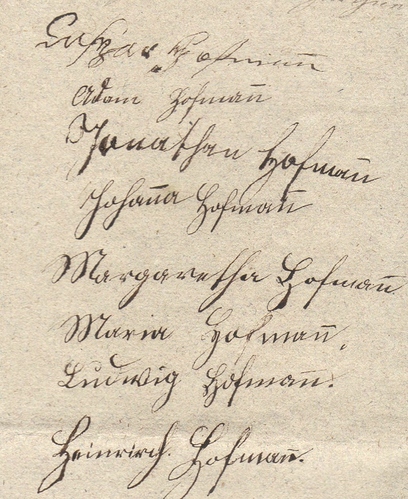 Caspar Hofmann
Adam Hofmann
Jonathan Hofmann
Johanna Hofmann
Margaretha Hofmann
Maria Hofmann.
Ludwig Hofmann.
Heinrich. Hofmann.